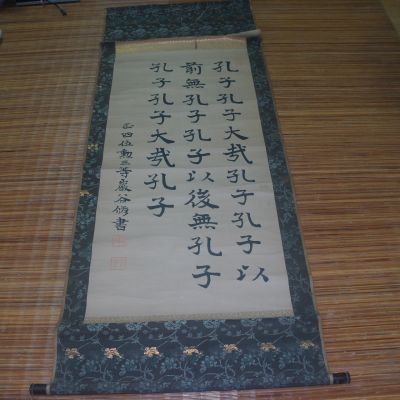 孔子孔子大哉孔子孔子以
前無孔子孔子以後無孔子
孔子孔子大哉孔子
正四位勲三等巖谷修書